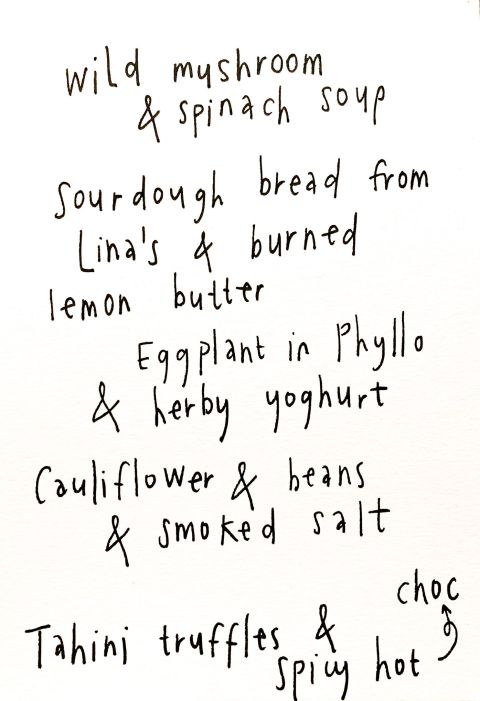 wild mushroom
& spinach soup
Sourdough bread from
Lina's & burned
lemon butter
Eggplant in Phyllo
& herby yoghurt
Cauliflower & beans
& smoked salt
Tahini truffles &
spicy hot choc